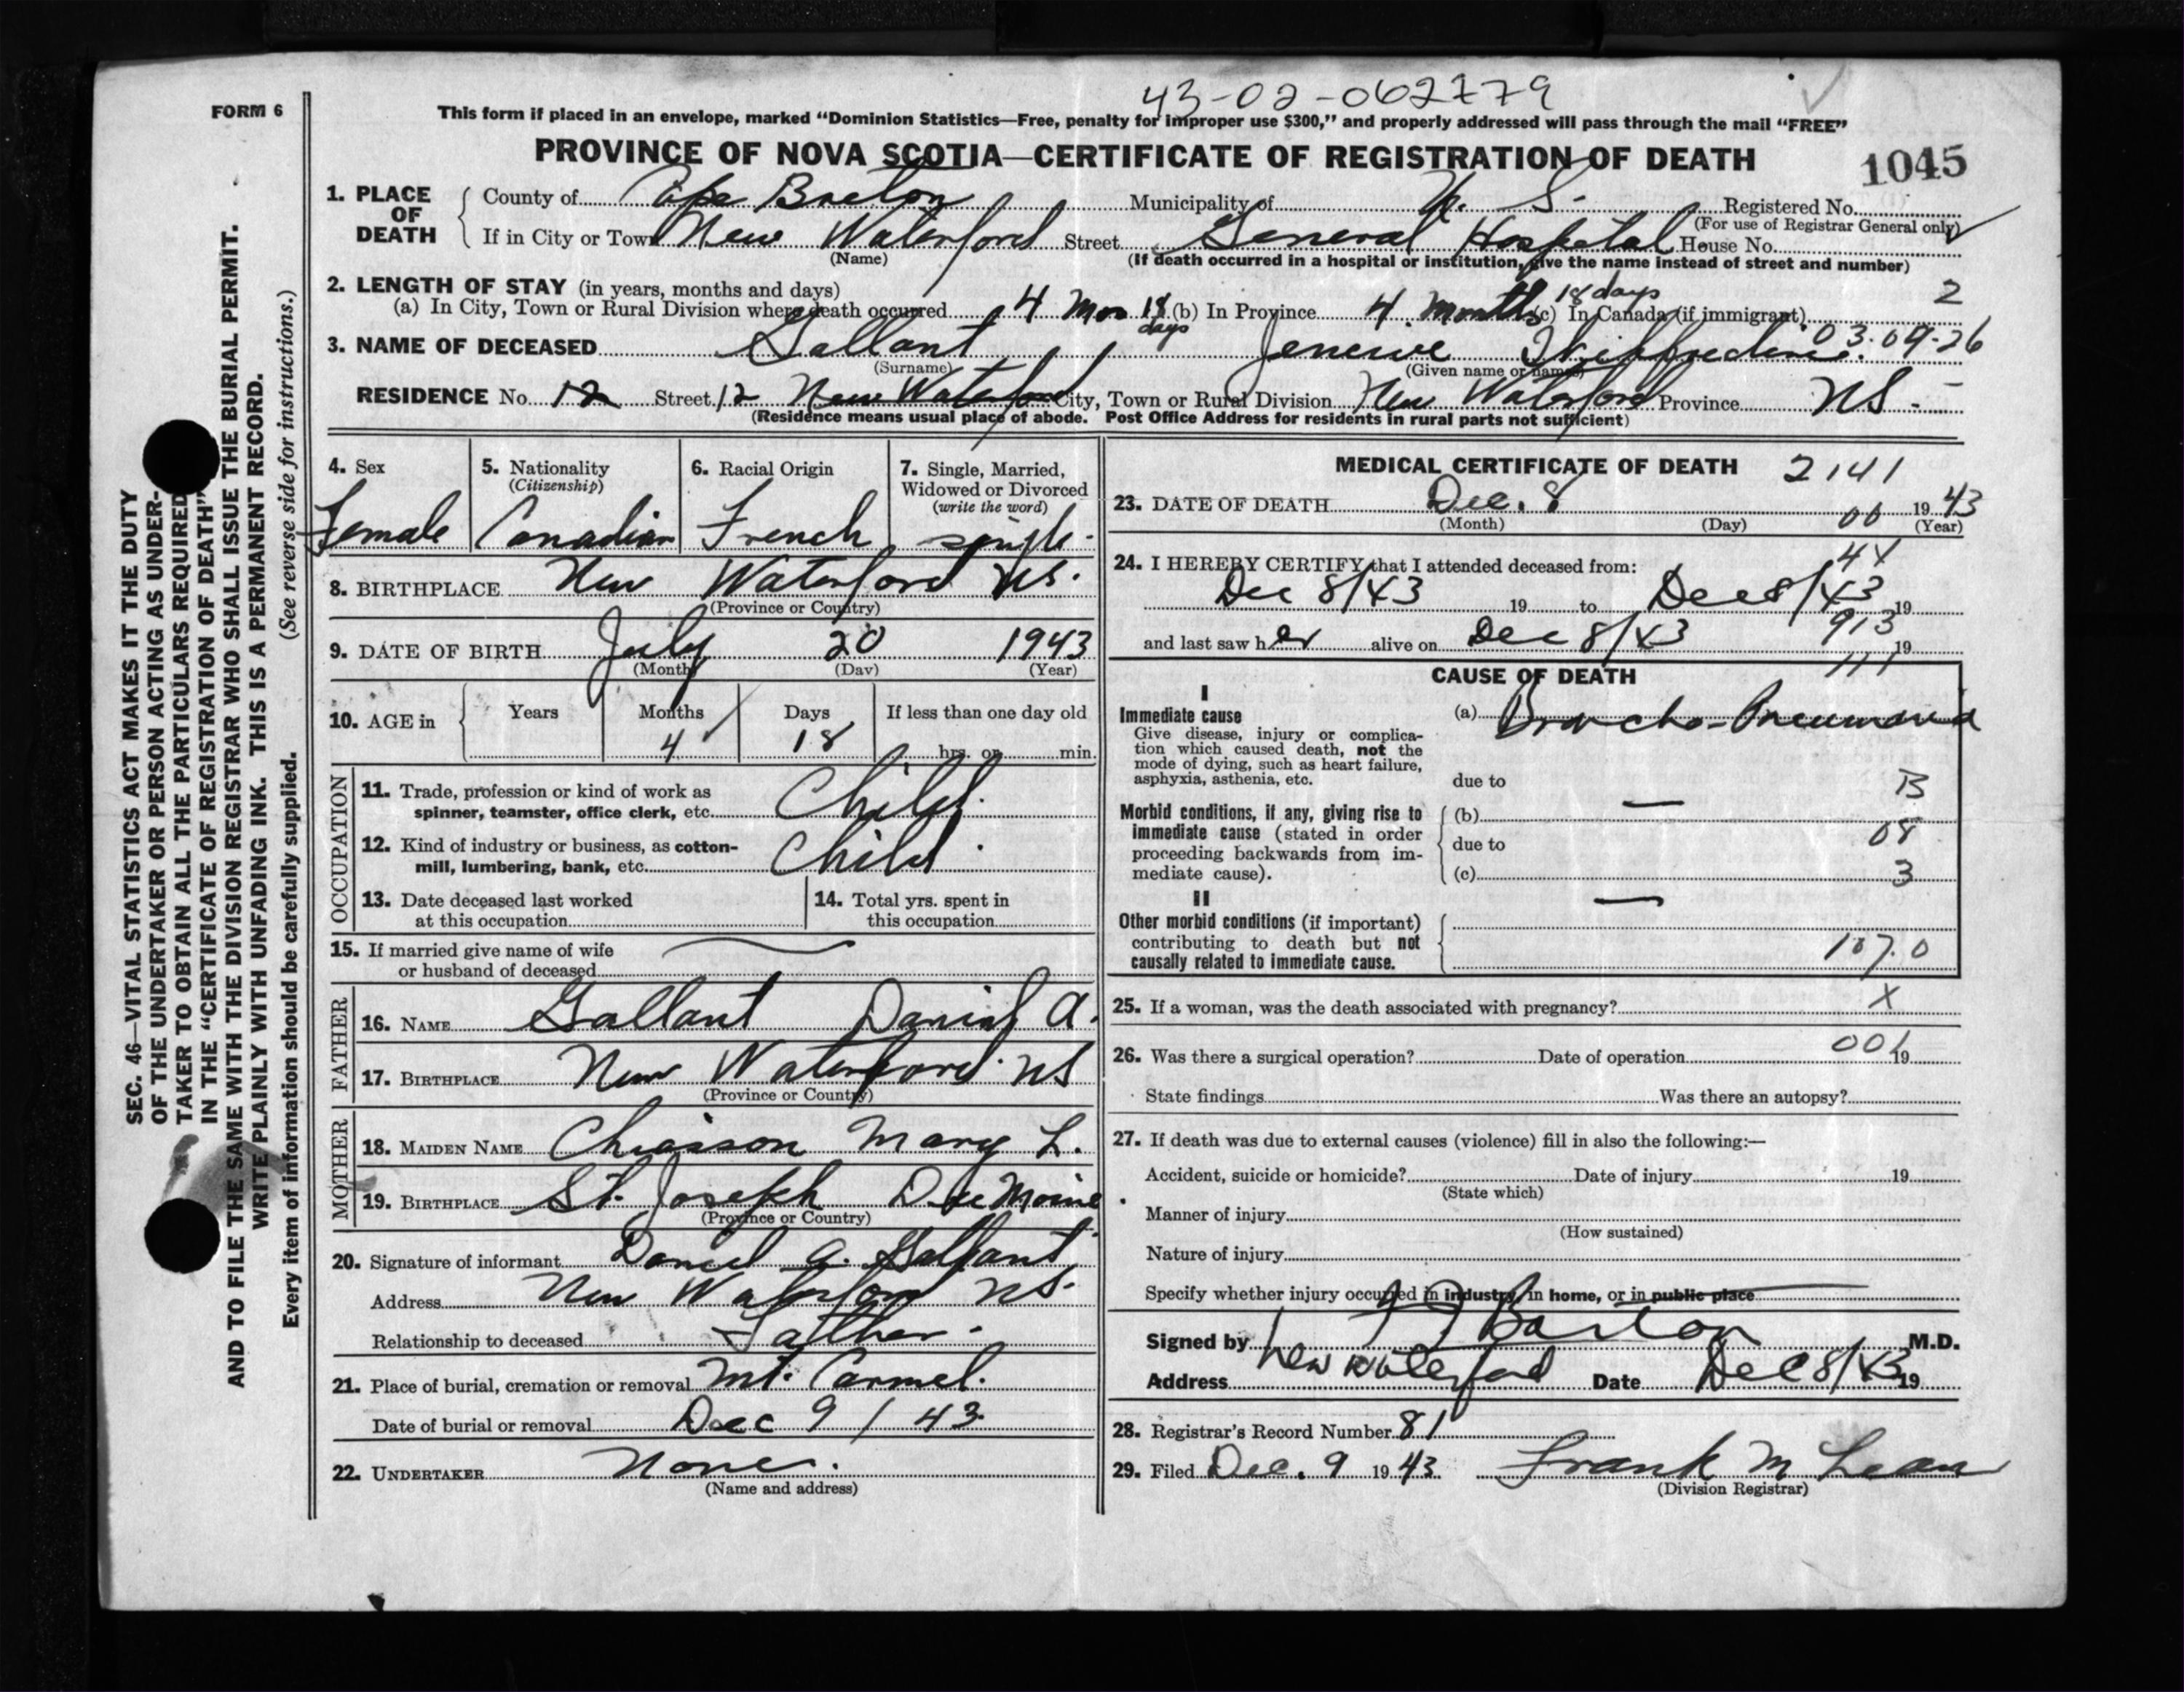 43-02-062779
FORM 6
This form if placed in an envelope, marked “Dominion Statistics—Free, penalty for improper use $300,” and properly addressed will pass through the mail “FREE”
PROVINCE OF NOVA SCOTIA—CERTIFICATE OF REGISTRATION OF DEATH 1045
1. PLACE OF DEATH { County of Cape Breton Municipality of N. S. Registered No.
(For use of Registrar General only)
If in City or Town New Waterford Street General Hospital House No.
(Name) (If death occurred in a hospital or institution, give the name instead of street and number)
2. LENGTH OF STAY (in years, months and days) 2
(a) In City, Town or Rural Division where death occurred 4 Mos 18 days (b) In Province 4 Months 18 days (c) In Canada (if immigrant)
3. NAME OF DECEASED Gallant Jenevie 03-09-26
(Surname) (Given name or names)
RESIDENCE No. 12 Street 12 New Waterford City, Town or Rural Division New Waterford Province NS -
(Residence means usual place of abode. Post Office Address for residents in rural parts not sufficient)
4. Sex 5. Nationality (Citizenship) 6. Racial Origin 7. Single, Married, Widowed or Divorced (write the word)
Female Canadian French single -
8. BIRTHPLACE New Waterford NS.
(Province or Country)
9. DATE OF BIRTH July 20 1943
(Month) (Day) (Year)
10. AGE in { Years Months Days If less than one day old
4 18 hrs. or min.
OCCUPATION
11. Trade, profession or kind of work as spinner, teamster, office clerk, etc. Child.
12. Kind of industry or business, as cotton-mill, lumbering, bank, etc. Child.
13. Date deceased last worked at this occupation
14. Total yrs. spent in this occupation
15. If married give name of wife or husband of deceased
FATHER
16. NAME Gallant Daniel A.
17. BIRTHPLACE New Waterford. NS
(Province or Country)
MOTHER
18. MAIDEN NAME Chiasson Mary L.
19. BIRTHPLACE St. Joseph Du Moine
(Province or Country)
20. Signature of informant Daniel A. Gallant
Address New Waterford NS.
Relationship to deceased Father.
21. Place of burial, cremation or removal Mt. Carmel.
Date of burial or removal Dec 9 / 43.
22. UNDERTAKER None.
(Name and address)
MEDICAL CERTIFICATE OF DEATH 2141
23. DATE OF DEATH Dec. 8 00 19 43
(Month) (Day) (Year)
24. I HEREBY CERTIFY that I attended deceased from: 4X
Dec 8/43 19 to Dec 8/43 19
and last saw her alive on Dec 8/43 913 19
111
CAUSE OF DEATH
I
Immediate cause (a) Broncho-Pneumonia
Give disease, injury or complication which caused death, not the mode of dying, such as heart failure, asphyxia, asthenia, etc.
due to B
Morbid conditions, if any, giving rise to immediate cause (stated in order proceeding backwards from immediate cause).
(b) —
due to 08
(c) 3
II
Other morbid conditions (if important) contributing to death but not causally related to immediate cause. —
107.0
25. If a woman, was the death associated with pregnancy? X
26. Was there a surgical operation? Date of operation 001 19
State findings Was there an autopsy?
27. If death was due to external causes (violence) fill in also the following:—
Accident, suicide or homicide? Date of injury 19
(State which)
Manner of injury
(How sustained)
Nature of injury
Specify whether injury occurred in industry, in home, or in public place
Signed by Barton M.D.
Address New Waterford Date Dec 8/43 19
28. Registrar's Record Number 81
29. Filed Dec. 9 19 43 Frank McLean
(Division Registrar)
SEC. 46—VITAL STATISTICS ACT MAKES IT THE DUTY
OF THE UNDERTAKER OR PERSON ACTING AS UNDER-
TAKER TO OBTAIN ALL THE PARTICULARS REQUIRED
IN THE “CERTIFICATE OF REGISTRATION OF DEATH”
AND TO FILE THE SAME WITH THE DIVISION REGISTRAR WHO SHALL ISSUE THE BURIAL PERMIT.
WRITE PLAINLY WITH UNFADING INK. THIS IS A PERMANENT RECORD.
Every item of information should be carefully supplied. (See reverse side for instructions.)